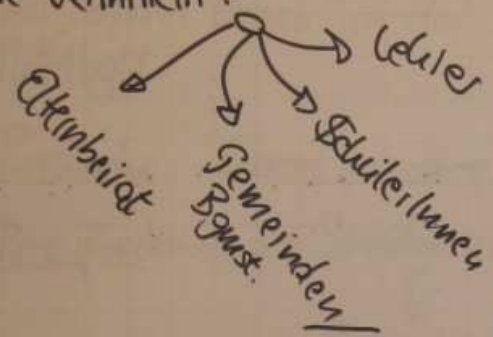 Lehrer
SchülerInnen
Gemeinden/
Bgmst.
Elternbeirat